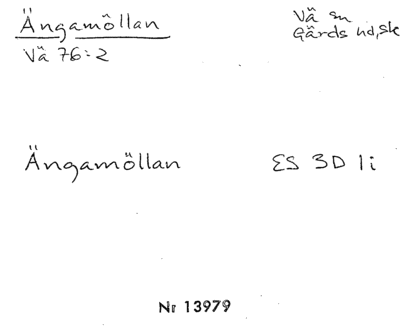 Ängamöllan
Vä sn
Gärds hd, Sk
Vä 76:2
Ängamöllan
ES 3D 1i
Nr 13979